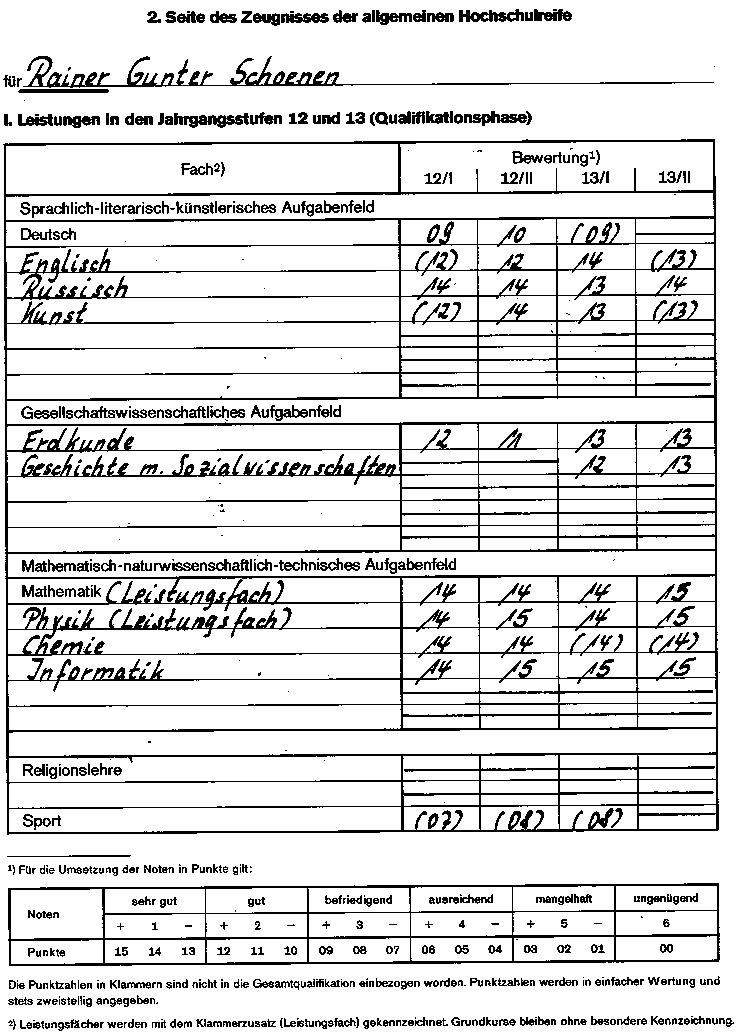 2. Seite des Zeugnisses der allgemeinen Hochschulreife
für Rainer Gunter Schoenen
I. Leistungen in den Jahrgangsstufen 12 und 13 (Qualifikationsphase)
Fach2) Bewertung1)
12/I 12/II 13/I 13/II
Sprachlich-literarisch-künstlerisches Aufgabenfeld
Deutsch 09 10 (09)
Englisch (12) 12 14 (13)
Russisch 14 14 13 14
Kunst (12) 14 13 (13)
Gesellschaftswissenschaftliches Aufgabenfeld
Erdkunde 12 11 13 13
Geschichte m. Sozialwissenschaften 12 13
Mathematisch-naturwissenschaftlich-technisches Aufgabenfeld
Mathematik (Leistungsfach) 14 14 14 15
Physik (Leistungsfach) 14 15 14 15
Chemie 14 14 (14) (14)
Informatik 14 15 15 15
Religionslehre
Sport (07) (08) (08)
1) Für die Umsetzung der Noten in Punkte gilt:
Noten sehr gut gut befriedigend ausreichend mangelhaft ungenügend
+ 1 − + 2 − + 3 − + 4 − + 5 − 6
Punkte 15 14 13 12 11 10 09 08 07 06 05 04 03 02 01 00
Die Punktzahlen in Klammern sind nicht in die Gesamtqualifikation einbezogen worden. Punktzahlen werden in einfacher Wertung und
stets zweistellig angegeben.
2) Leistungsfächer werden mit dem Klammerzusatz (Leistungsfach) gekennzeichnet. Grundkurse bleiben ohne besondere Kennzeichnung.